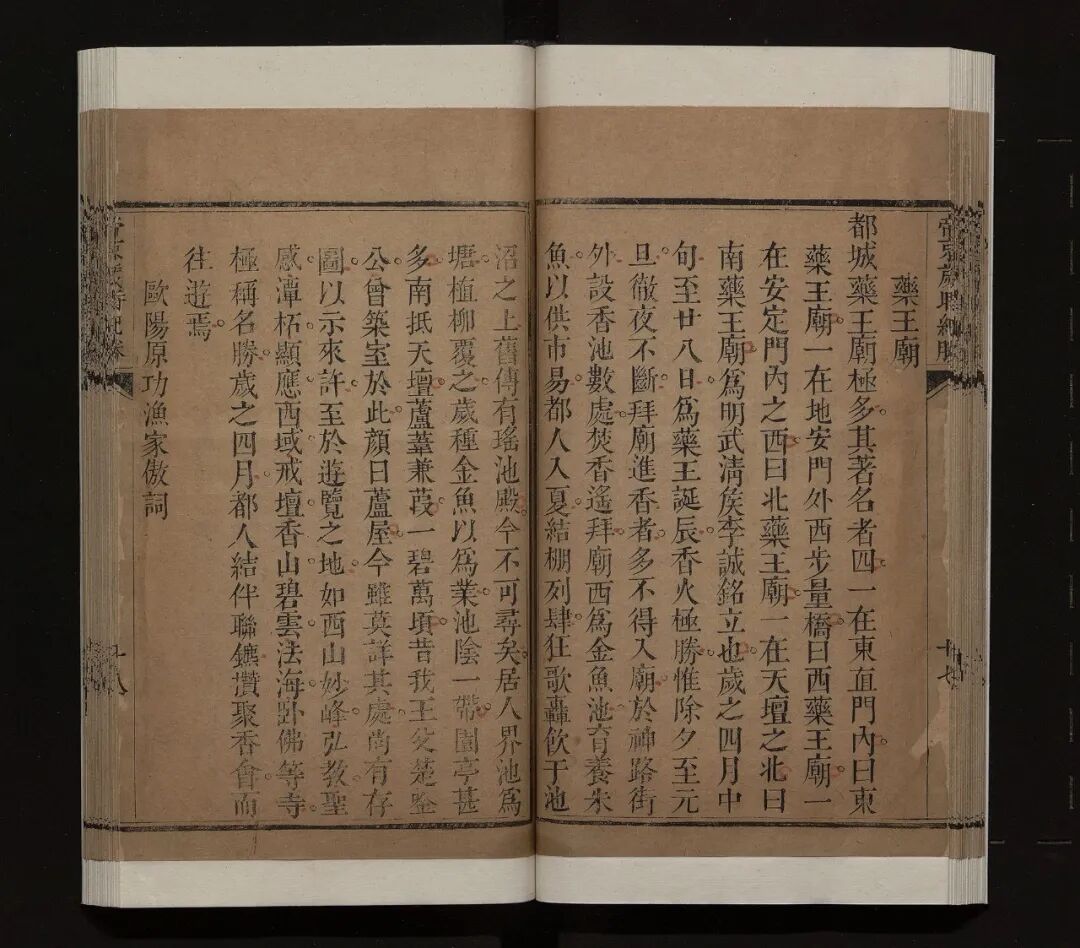 藥王廟
都城藥王廟極多其著名者四一在東直門內曰東
藥王廟一在地安門外西步量橋曰西藥王廟一
在安定門內之西曰北藥王廟一在天壇之北曰
南藥王廟爲明武淸侯李誠銘立也歲之四月中
旬至廿八日爲藥王誕辰香火極勝惟除夕至元
旦徹夜不斷拜廟進香者多不得入廟於神路街
外設香池數處焚香遙拜廟西爲金魚池育養朱
魚以供市易都人入夏結棚列肆狂歌轟飮于池
沼之上舊傳有瑤池殿今不可尋矣居人界池爲
塘植柳覆之歲種金魚以爲業池陰一帶園亭甚
多南抵天壇蘆葦蒹葭一碧萬頃昔我王父楚
公曾築室於此顏曰蘆屋今雖莫詳其處尚有存
圖以示來許至於遊覽之地如西山妙峰弘教聖
感潭柘顯應西域戒壇香山碧雲法海臥佛等寺
極稱名勝歲之四月都人結伴聯鑣攢聚香會而
往遊焉
歐陽原功漁家傲詞
帝京歲時紀勝
十七